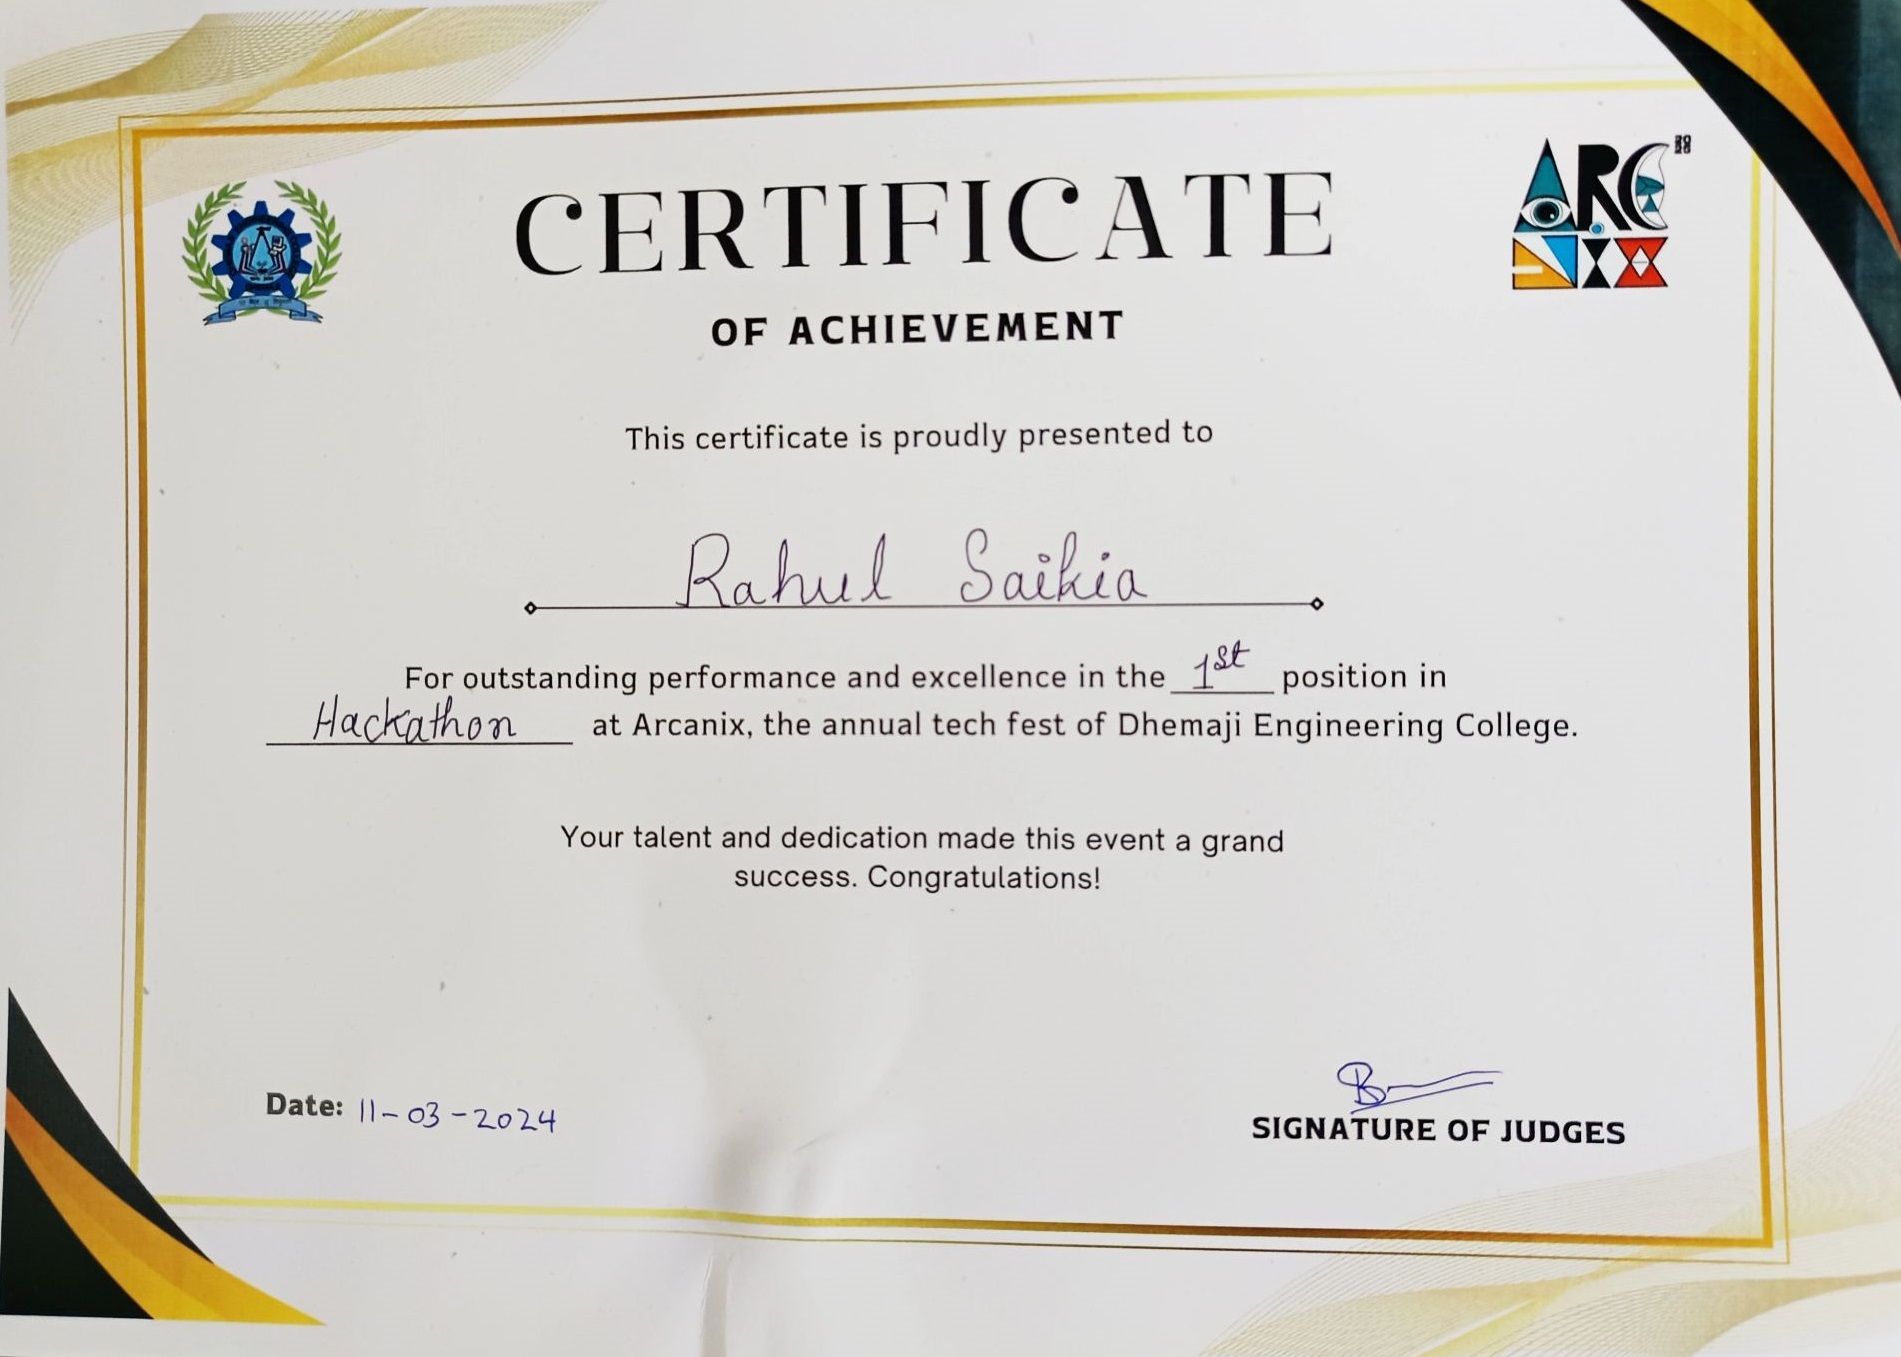 CERTIFICATE
OF ACHIEVEMENT
This certificate is proudly presented to
Rahul Saikia
For outstanding performance and excellence in the 1st position in
Hackathon at Arcanix, the annual tech fest of Dhemaji Engineering College.
Your talent and dedication made this event a grand
success. Congratulations!
Date: 11-03-2024
SIGNATURE OF JUDGES